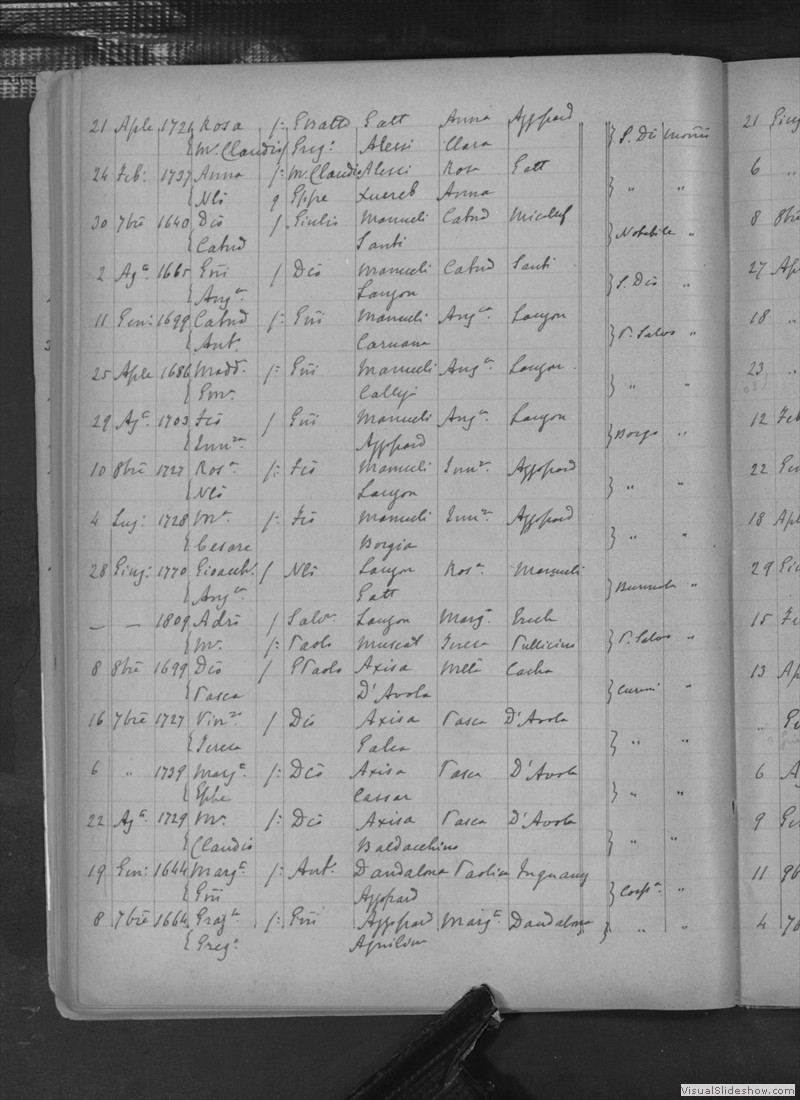 21 Aple 1721 Rosa f: Gbatta Gatt Anna Azzopard } P. Dei morūi
{ Mr. Claudio Greg: Alessi Clara
24 Feb: 1737 Anna f: Mr. Claudio Alessi Rosa Gatt } " "
{ Nlō q Gppe Xuereb Anna
30 7brē 1640 Dcō f Giulio Manueli Catnd Micalef } Notabile "
{ Catnd Santi
2 Agta 1665 Gni f Dcō Manueli Catnd Santi } S. Dcō "
{ Angca Saugon
11 Gen: 1699 Catnd f: Gni Manueli Angca Saugon } P. Salvo "
{ Ant. Caruana
25 Aple 1686 Madd. f: Gni Manueli Angca Saugon } " "
{ Gmr. Calleja
29 Agta 1703 Fcō f Gni Manueli Angca Saugon } Borgo "
{ Innza Azzopard
10 8brē 1727 Rosa f: Fcō Manueli Innza Azzopard } " "
{ Nlō Saugon
4 Lug: 1728 Mr. f: Fcō Manueli Innza Azzopard } " "
{ Cesare Borgia
28 Giug: 1770 Gioacch. f Nlō Saugon Rosa Manueli "
{ Angca Gatt
— — 1809 Adrō f Salvr. Saugon Marga Grech } P. Salvo "
{ Mr. f: Paolo Muscat Teresa Pullicino
8 8brē 1699 Dcō f Paolo Axisa Metā Cacha } Curmi "
{ Pasca D'Avola
16 7brē 1727 Vinza f Dcō Axisa Pasca D'Avola } " "
{ Teresa Galea
6 " 1739 Marga f: Dcō Axisa Pasca D'Avola } " "
{ Gppe Cassar
22 Agta 1729 Mr. f: Dcō Axisa Pasca D'Avola } " "
{ Claudio Baldacchino
19 Gen: 1644 Marga f: Ant. Dandalona Paolica Inguany } Corpa "
{ Gni Azzopard
8 7brē 1664 Graza f: Gni Azzopard Marga Dandalona } " "
{ Greg: Aquilina
21 Giug
6 "
8 8brē
27 Apl
18 "
23 "
12 Feb
22 Gen
18 Apl
29 Giu
15 Fe
13 Ap
" Ge
6 A
9 Ge
11 9b
4 7b
VisualSlideshow.com